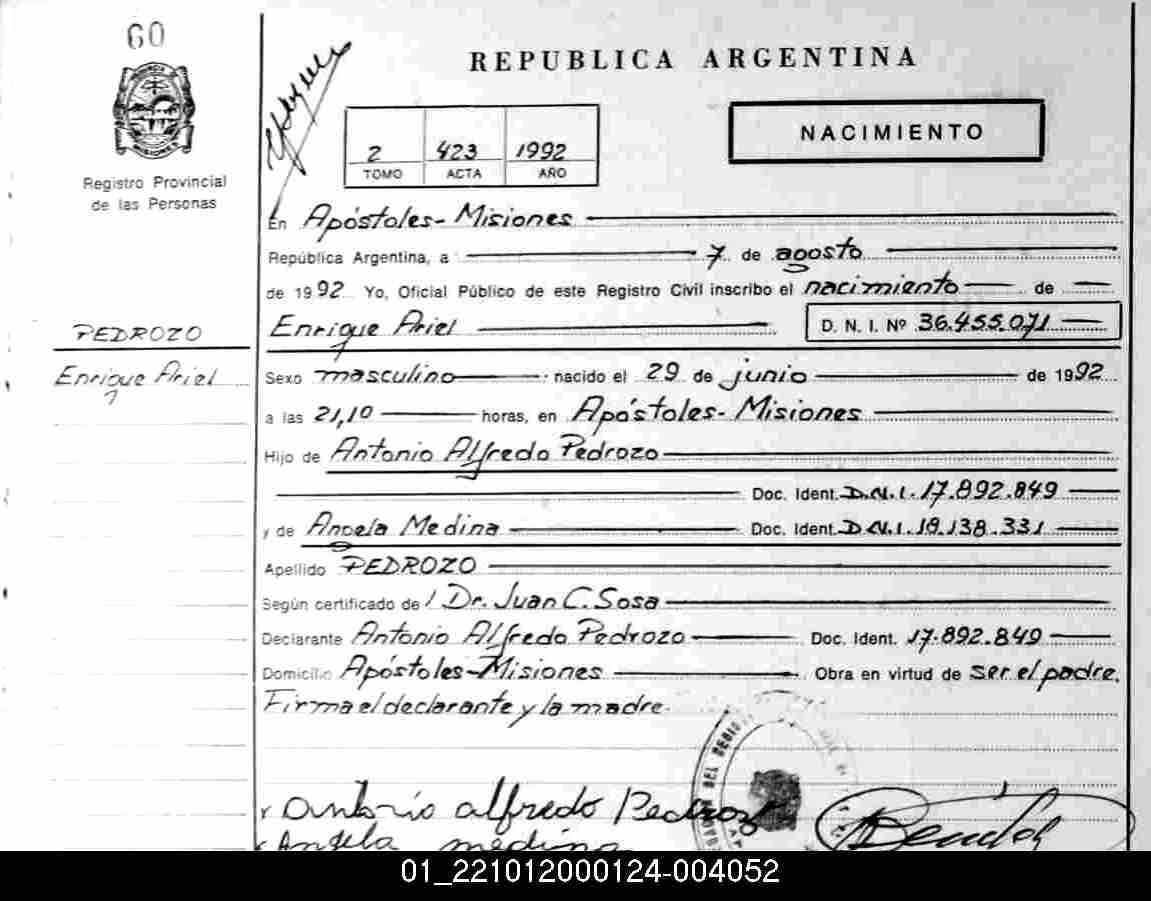 60
REPUBLICA ARGENTINA
NACIMIENTO
MISIONES
Registro Provincial
de las Personas
2 423 1992
TOMO ACTA AÑO
En Apóstoles - Misiones
República Argentina, a 7 de agosto
de 1992 Yo, Oficial Público de este Registro Civil inscribo el nacimiento de
PEDROZO
Enrique Ariel D. N. I. Nº 36.455.071
Enrique Ariel
Sexo masculino nacido el 29 de junio de 1992
a las 21,10 horas, en Apóstoles - Misiones
Hijo de Antonio Alfredo Pedrozo
Doc. Ident. D.N.I. 17.892.849
y de Angela Medina Doc. Ident. D.N.I. 18.138.331
Apellido PEDROZO
Según certificado de / Dr. Juan C. Sosa
Declarante Antonio Alfredo Pedrozo Doc. Ident. 17.892.849
Domicilio Apóstoles - Misiones Obra en virtud de ser el padre.
Firma el declarante y la madre.
Antonio alfredo Pedrozo
Angela medina
01_221012000124-004052